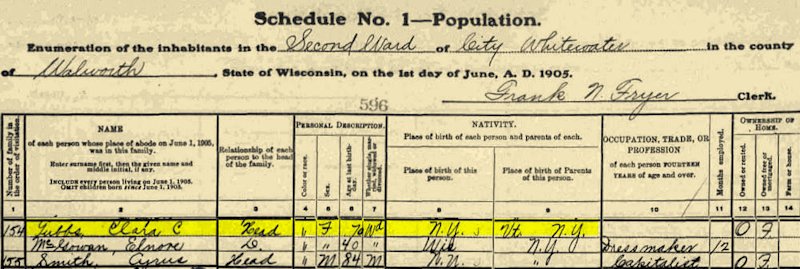 Schedule No. 1—Population.
Enumeration of the inhabitants in the Second Ward of City Whitewater in the county
of Walworth, State of Wisconsin, on the 1st day of June, A. D. 1905.
Frank N. Fryer Clerk.
596
Number of family in the order of visitation.
NAME
of each person whose place of abode on June 1, 1905, was in this family.
Enter surname first, then the given name and middle initial, if any.
INCLUDE every person living on June 1, 1905.
OMIT children born since June 1, 1905.
Relationship of each person to the head of the family.
PERSONAL DESCRIPTION.
Color or race.
Sex.
Age at last birthday.
Whether single, married, widowed or divorced.
NATIVITY.
Place of birth of each person and parents of each.
Place of birth of this person.
Place of birth of Parents of this person.
OCCUPATION, TRADE, OR PROFESSION
of each person FOURTEEN YEARS of age and over.
Months employed.
OWNERSHIP OF HOME.
Owned or rented.
Owned free or mortgaged.
Farm or house.
1 2 3 4 5 6 7 8 9 10 11 12 13 14
154 Gibbs, Clara C Head " F 70 Wd N.Y. Vt. N.Y. O F
McGowan, Elnore D. " " 40 " Wis N.Y. Dressmaker 12
155 Smith, Cyrus Head " M 84 M N.Y. " Capitalist O F